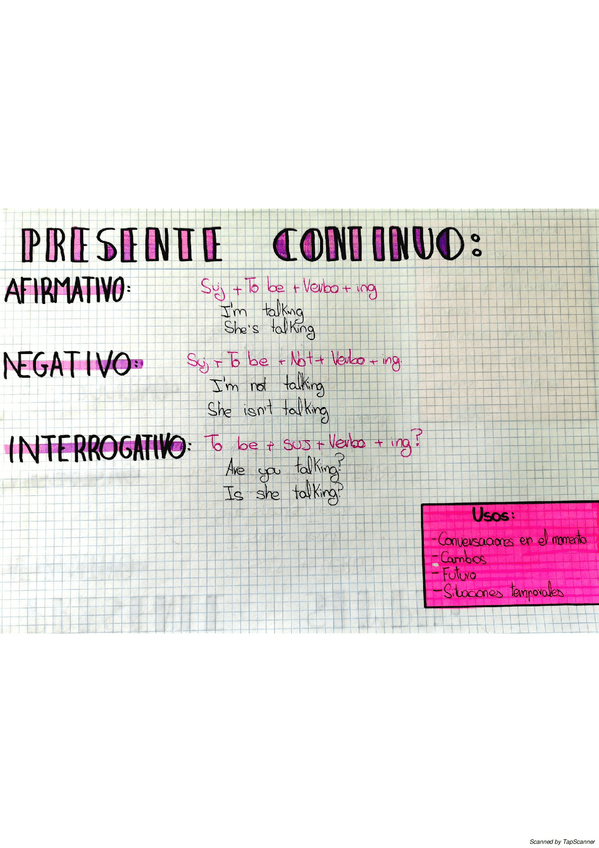 PRESENTE CONTINUO:
AFIRMATIVO: Suj + To be + Verbo + ing
I'm talking
She's talking
NEGATIVO: Suj + To be + Not + Verbo + ing
I'm not talking
She isn't talking
INTERROGATIVO: To be + sus + Verbo + ing?
Are you talking?
Is she talking?
Usos:
- Conversaciones en el momento
- Cambios
- Futuro
- Situaciones temporales
Scanned by TapScanner